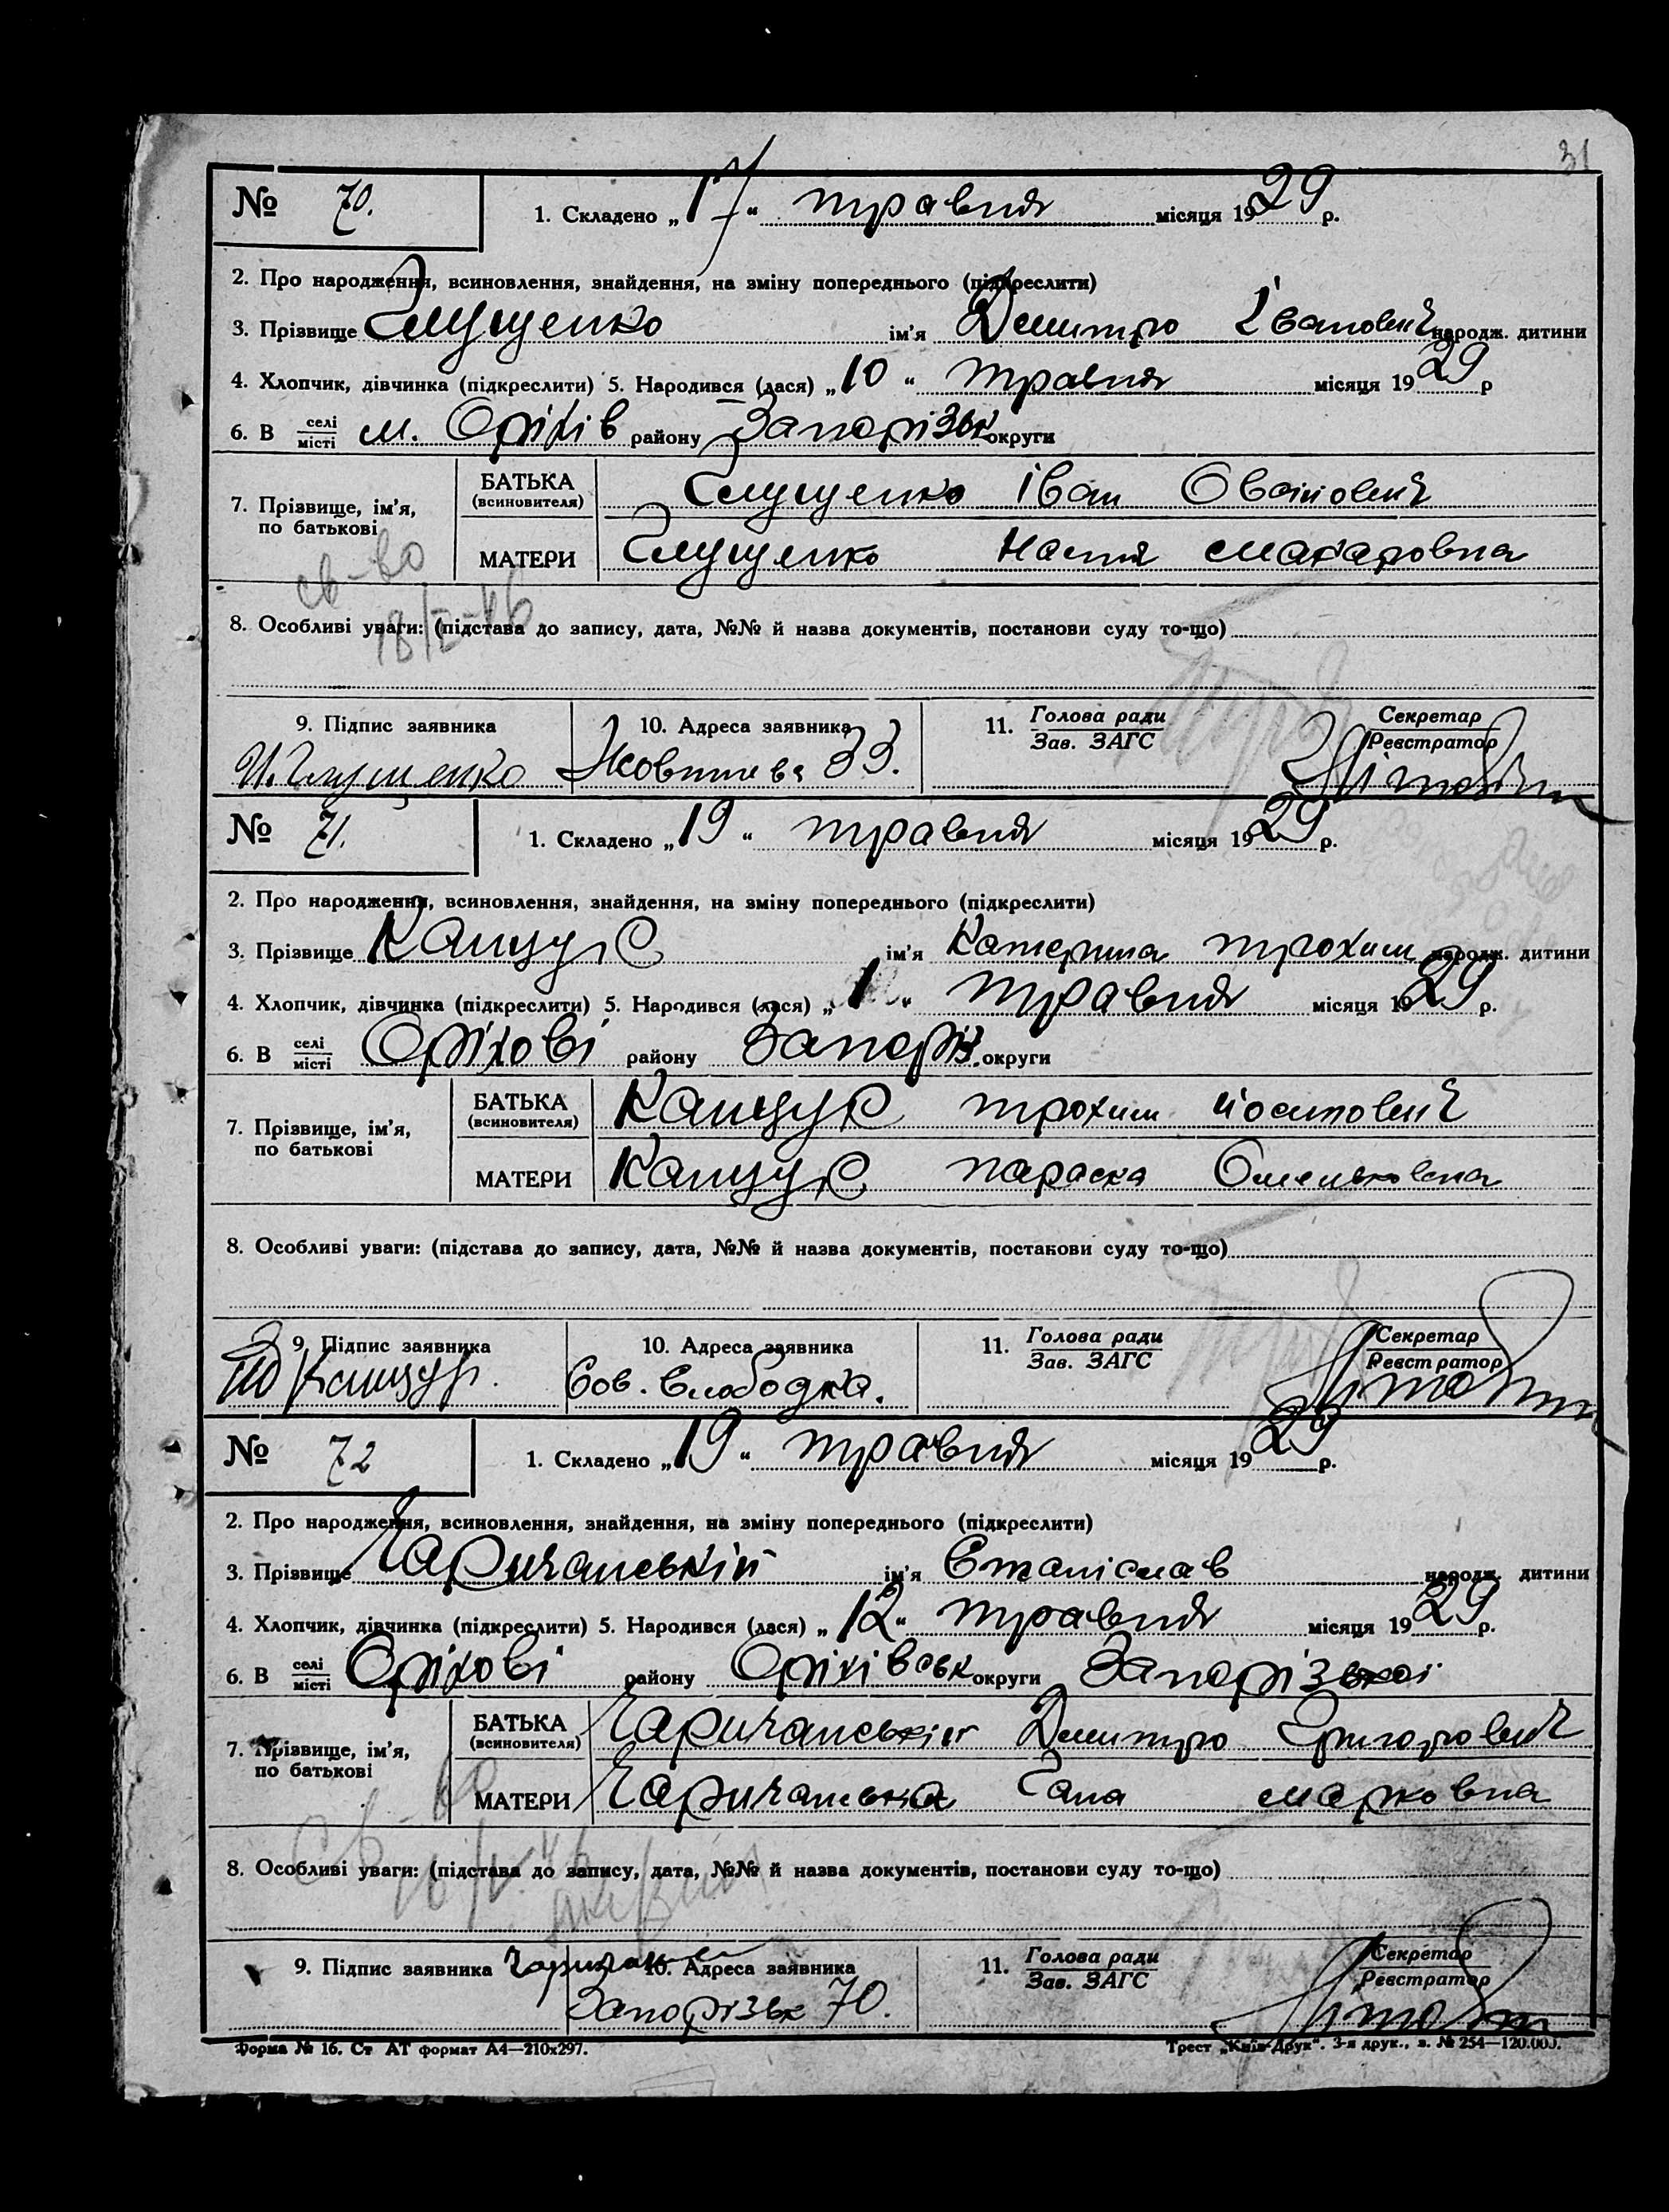 31
№ 70. 1. Складено „17“ травня місяця 1929 р.
2. Про народження, всиновлення, знайдення, на зміну попереднього (підкреслити)
3. Прізвище Глущенко ім'я Дмитро Іванович народж. дитини
4. Хлопчик, дівчинка (підкреслити) 5. Народився (лася) „10“ травня місяця 1929 р
6. В селі/місті м. Оріхів району Запорізьк округи
7. Прізвище, ім'я, по батькові
БАТЬКА (всиновителя) Глущенко Іван
МАТЕРИ Глущенко Настя макаровна
св-во
8. Особливі уваги: (підстава до запису, дата, №№ й назва документів, постанови суду то-що)
9. Підпис заявника 10. Адреса заявника 11. Голова ради/Зав. ЗАГС Секретар/Реєстратор
И. Глущенко Жовтнева 33.
№ 71. 1. Складено „19“ травня місяця 1929 р.
2. Про народження, всиновлення, знайдення, на зміну попереднього (підкреслити)
3. Прізвище ім'я Катерина трохим народж. дитини
4. Хлопчик, дівчинка (підкреслити) 5. Народився (лася) „1“ травня місяця 1929 р.
6. В селі/місті Оріхові району Запоріз. округи
7. Прізвище, ім'я, по батькові
БАТЬКА (всиновителя) трохим йосипович
МАТЕРИ параска Омельковна
8. Особливі уваги: (підстава до запису, дата, №№ й назва документів, постанови суду то-що)
9. Підпис заявника 10. Адреса заявника 11. Голова ради/Зав. ЗАГС Секретар/Реєстратор
Сов. Слободка.
№ 72 1. Складено „19“ травня місяця 1929 р.
2. Про народження, всиновлення, знайдення, на зміну попереднього (підкреслити)
3. Прізвище Чаричанський ім'я Станіслав народж. дитини
4. Хлопчик, дівчинка (підкреслити) 5. Народився (лася) „12“ травня місяця 1929 р.
6. В селі/місті Оріхові району Оріхівськ округи Запорізької
7. Прізвище, ім'я, по батькові
БАТЬКА (всиновителя) Чаричанський Дмитро Григорович
МАТЕРИ Чаричанська Гана марковна
Св-во
8. Особливі уваги: (підстава до запису, дата, №№ й назва документів, постанови суду то-що)
9. Підпис заявника 10. Адреса заявника 11. Голова ради/Зав. ЗАГС Секретар/Реєстратор
Запорізьк 70.
Форма № 16. Ст АТ формат А4—210х297. Трест „Київ-Друк“. 3-я друк., з. № 254—120.000.